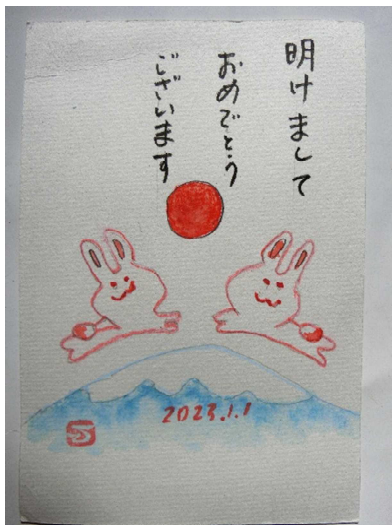 明けまして
おめでとう
ございます
2023.1.1